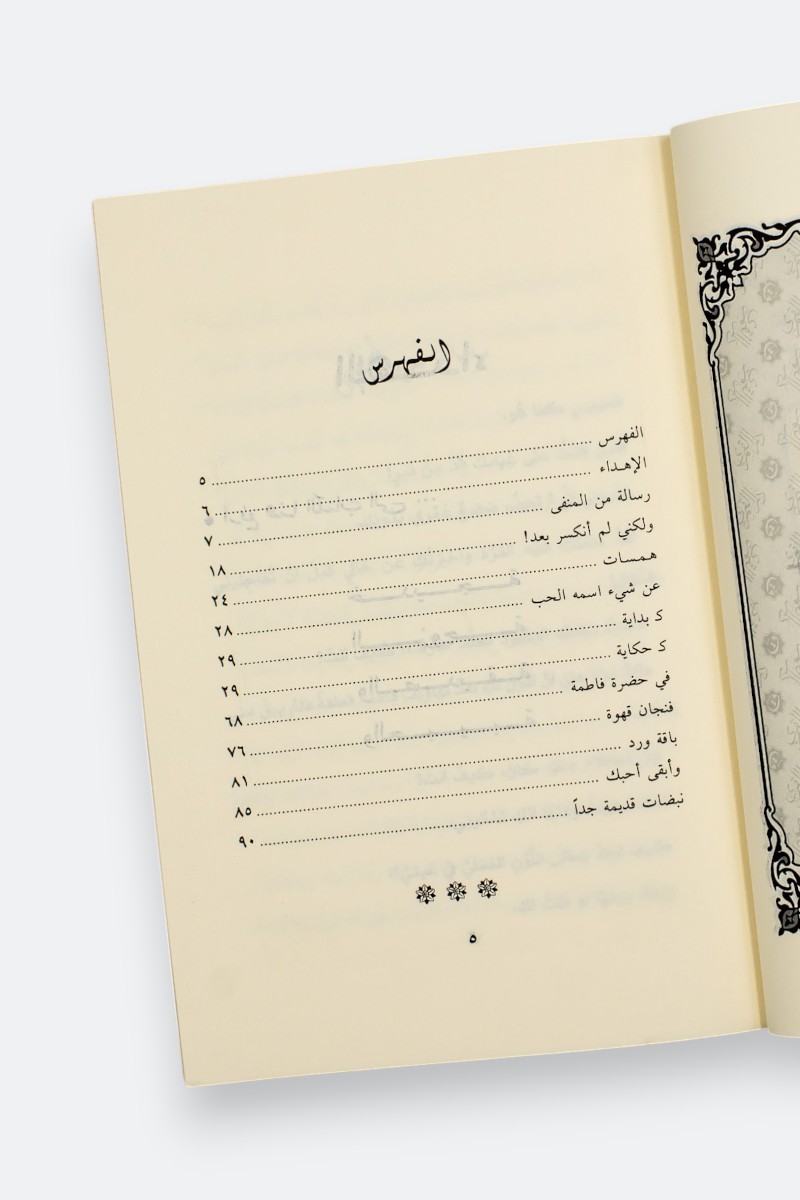 الفهرس
الفهرس ........ ٥
الإهـداء ........ ٦
رسالة من المنفى ........ ٧
ولكني لم أنكسر بعد! ........ ١٨
همسـات ........ ٢٤
عن شيء اسمه الحب ........ ٢٨
كـ بداية ........ ٢٩
كـ حكاية ........ ٢٩
في حضرة فاطمة ........ ٦٨
فنجان قهوة ........ ٧٦
باقة ورد ........ ٨١
وأبقى أحبك ........ ٨٥
نبضات قديمة جداً ........ ٩٠
٥